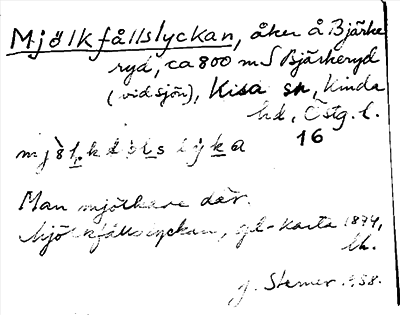 Mjölkfållslyckan, åker å Bjärke
ryd, ca 800 m S Bjärkeryd
(vid sjön), Kisa sn, Kinda
hd, Östg. l.
16
Man mjölkade där.
Mjölkfållslyckan, gl-karta 1874,
J. Sterner 1958.